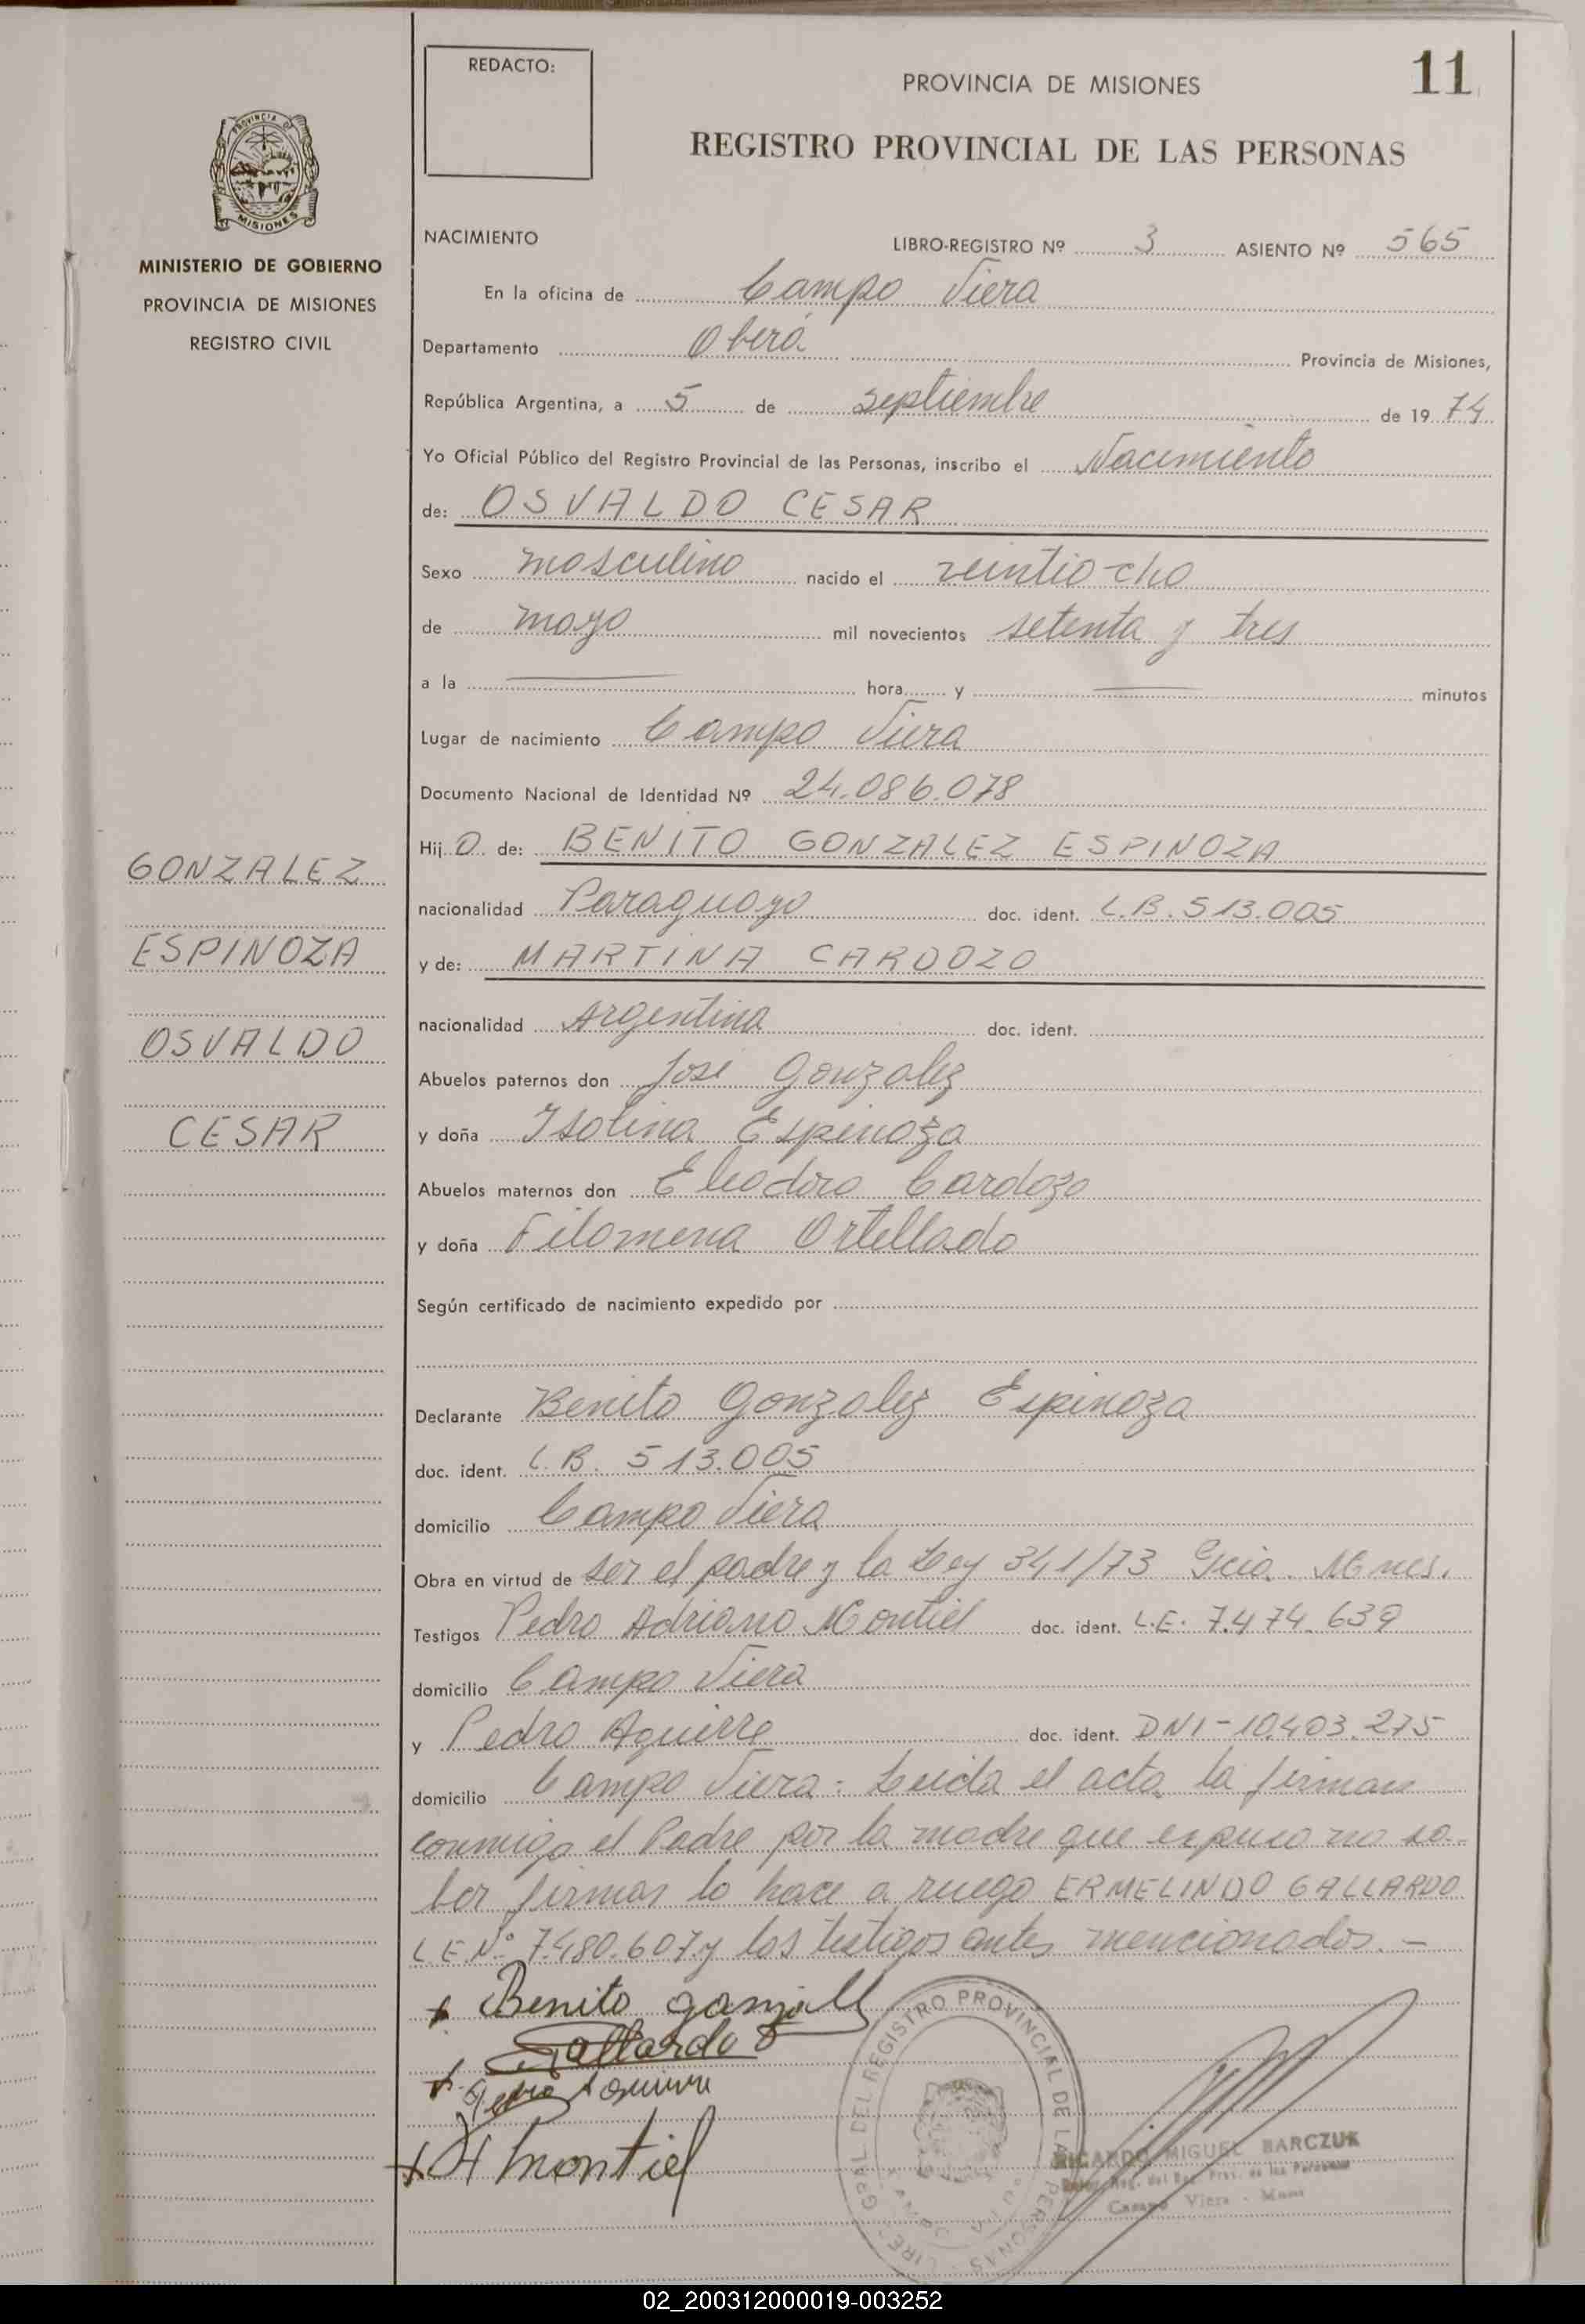 REDACTO:
11
PROVINCIA DE MISIONES
REGISTRO PROVINCIAL DE LAS PERSONAS
PROVINCIA DE
MISIONES
MINISTERIO DE GOBIERNO
PROVINCIA DE MISIONES
REGISTRO CIVIL
NACIMIENTO
LIBRO-REGISTRO Nº 3 ASIENTO Nº 565
En la oficina de Campo Viera
Departamento Oberá Provincia de Misiones,
República Argentina, a 5 de septiembre de 1974
Yo Oficial Público del Registro Provincial de las Personas, inscribo el Nacimiento
de: OSVALDO CESAR
Sexo masculino nacido el veintiocho
de mayo mil novecientos setenta y tres
a la hora y minutos
Lugar de nacimiento Campo Viera
Documento Nacional de Identidad Nº 24.086.078
Hijo de: BENITO GONZALEZ ESPINOZA
nacionalidad Paraguayo doc. ident. C.B. 513.005
y de: MARTINA CARDOZO
nacionalidad Argentina doc. ident.
Abuelos paternos don José Gonzalez
y doña Isolina Espinoza
Abuelos maternos don Eleodoro Cardozo
y doña Filomena Ortellado
Según certificado de nacimiento expedido por
Declarante Benito Gonzalez Espinoza
doc. ident. C.B. 513.005
domicilio Campo Viera
Obra en virtud de ser el padre y la Ley 341/73 Gcia. Mnes.
Testigos Pedro Adriano Montiel doc. ident. L.E. 7.474.639
domicilio Campo Viera
y Pedro Aguirre doc. ident. DNI-10.403.275
domicilio Campo Viera: Leida el acta la firman
conmigo el Padre por la madre que expuso no sa-
ber firmar lo hace a ruego ERMELINDO GALLARDO
L E Nº 7.480.607 y los testigos antes mencionados.-
GONZALEZ
ESPINOZA
OSVALDO
CESAR
Benito
Gallardo
Pedro Aguirre
Montiel
DEL REGISTRO PROVINCIAL DE LAS PERSONAS
RICARDO MIGUEL BARCZUK
Campo Viera - Mnes
02_200312000019-003252